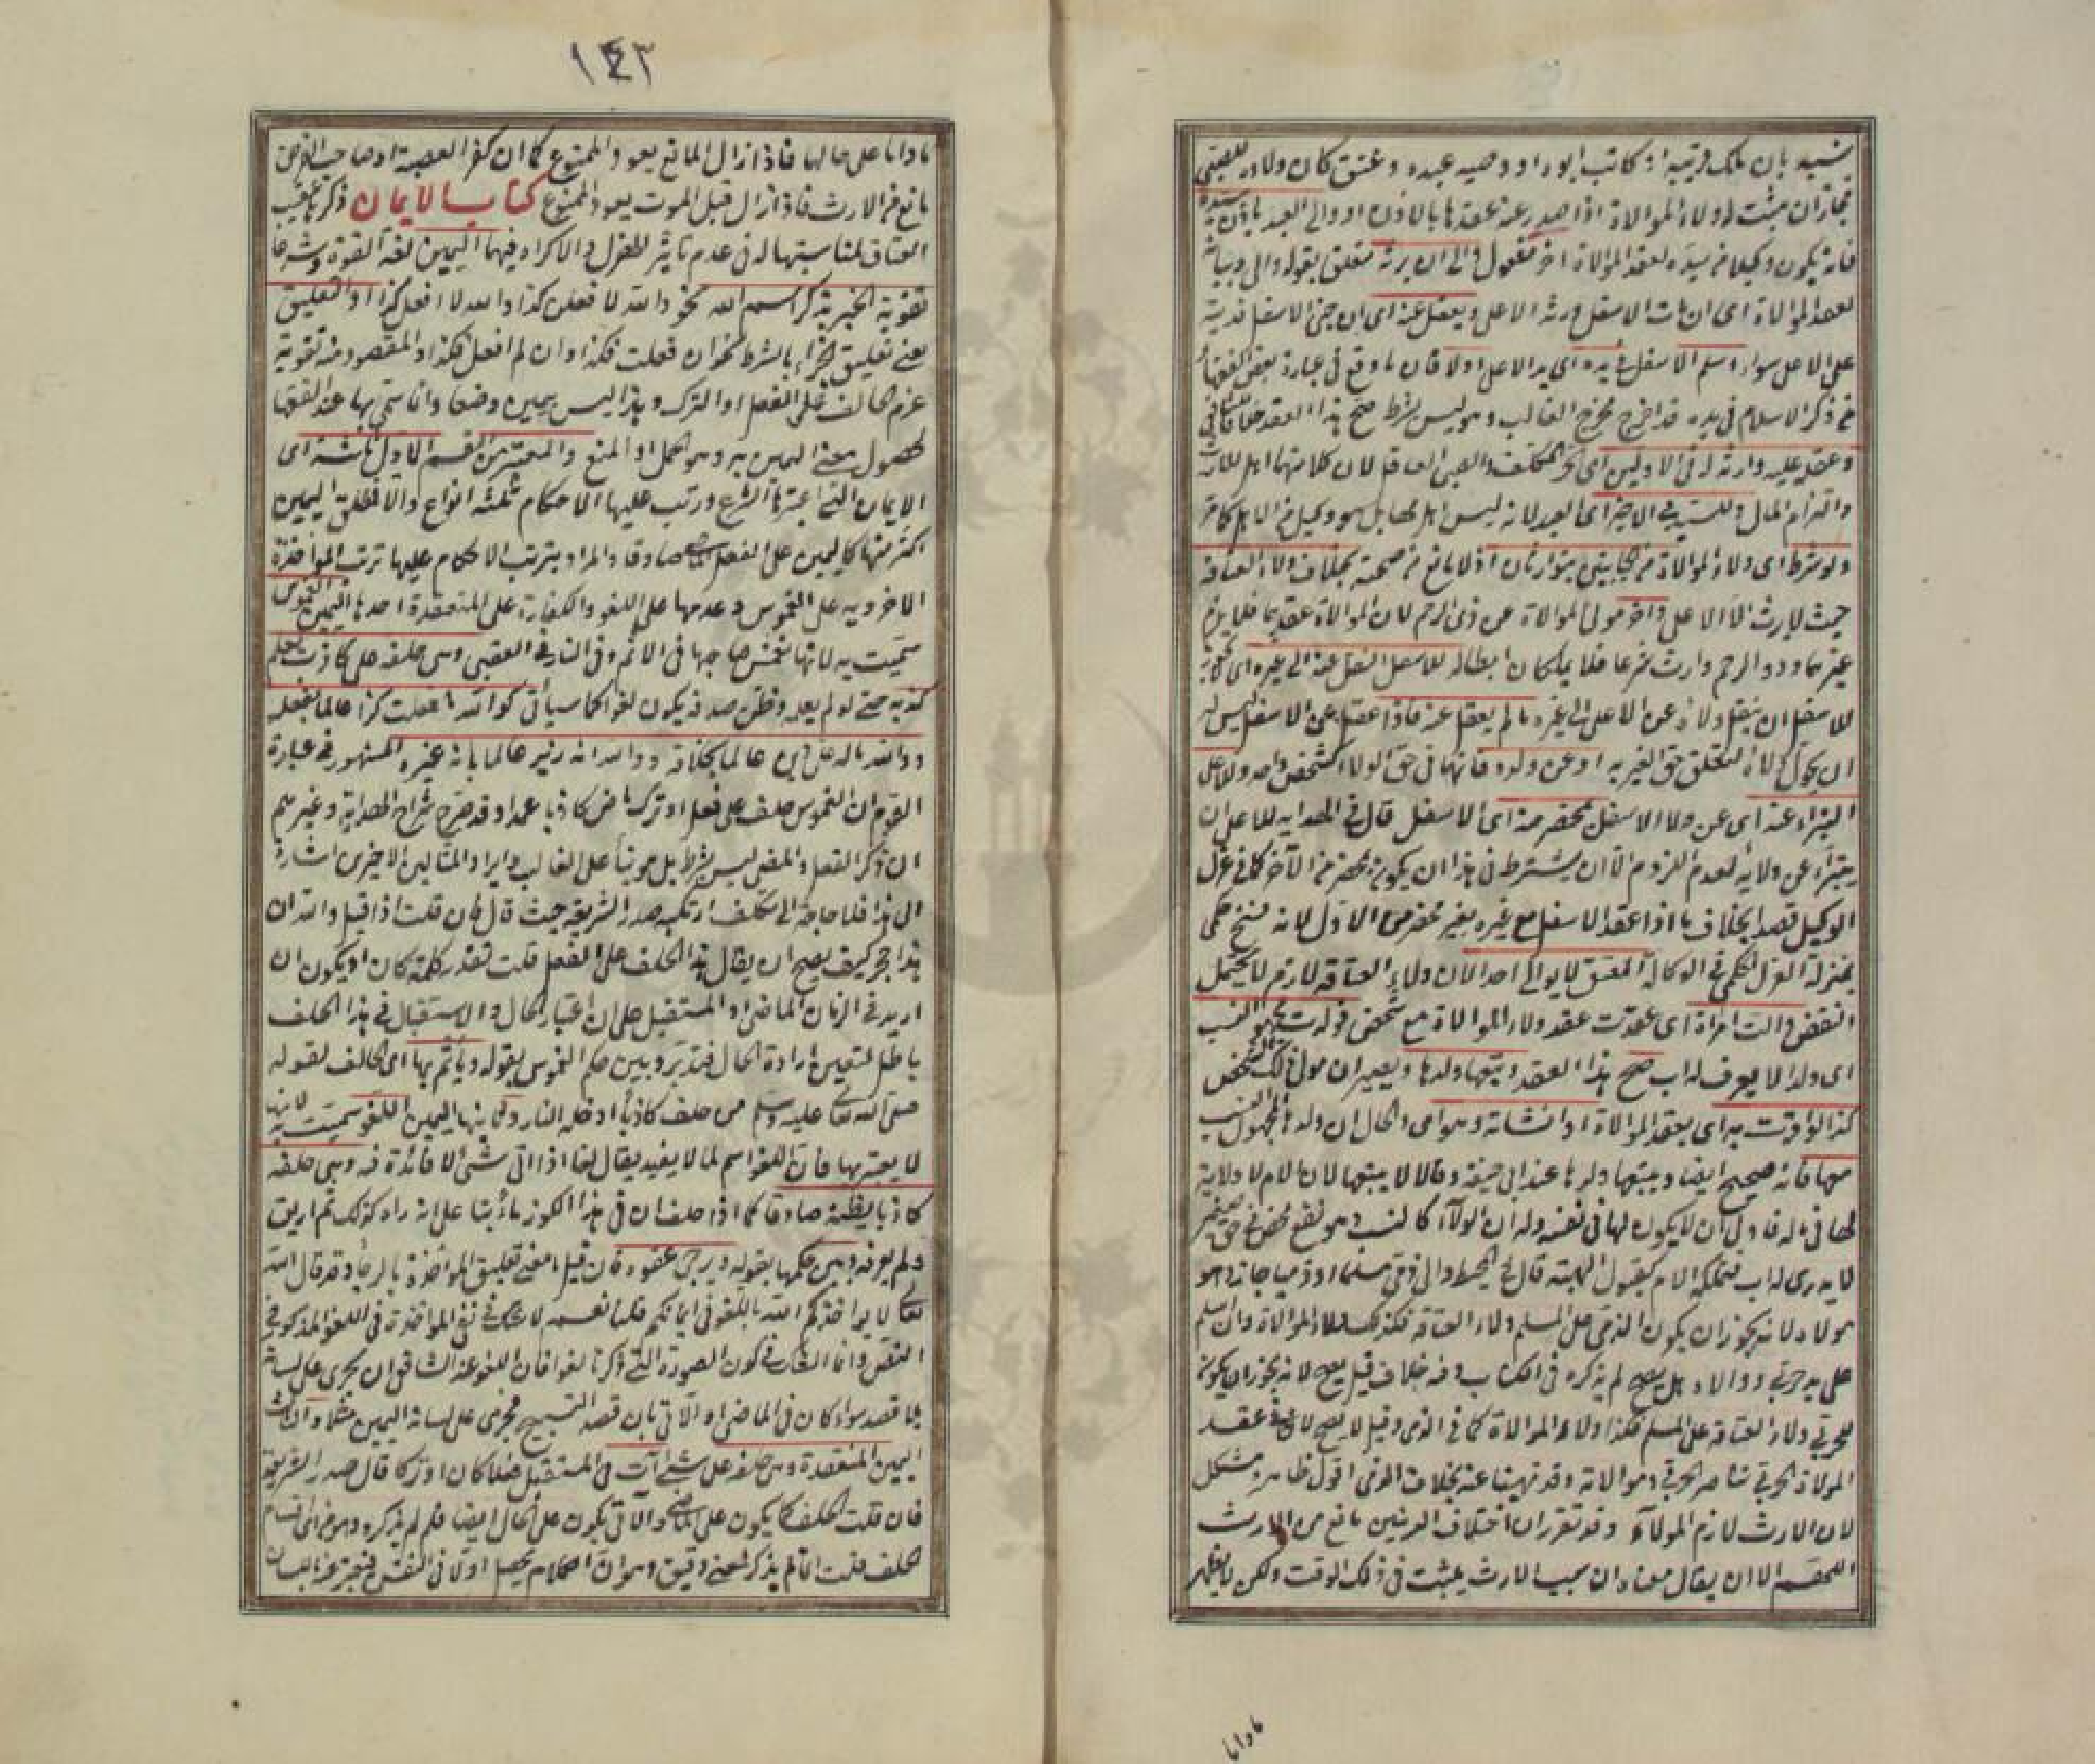 شبيه بان ملك قريبه او كاتب ابوه او وصيه عبده وعتق كان ولاؤه للصبي
فجاز ان يثبت له ولاء الموالاة اذا صدر عنه عقدها بالاذن او والى العبد باذن سيده
فانه يكون وكيلا من سيده لعقد الموالاة اخر مفعول والى ان يرثه متعلق بقوله والى وبيانه
لعقد الموالاة اى ان مات الاسفل ورثه الاعلى ويعقل عنه اى ان جنى الاسفل فديته
على الاعلى سواء اسلم الاسفل فى يده اى يد الاعلى اولا فان ما وقع فى عبارة بعض الفقهاء
من ذكر الاسلام فى يده قد اخرج مخرج الغالب وهو ليس بشرط صح هذا العقد خلافا للشافعى
وعقله عليه وارثه له فى الاوليين اى الحر المكلف والصبى العاقل لان كلا منهما اهل للارث
والتزام المال وللسيد فى الاخير اى العبد لانه ليس اهلا لهما بل هو وكيل من الاهل كما مر
ولو شرط اى ولاء الموالاة من الجانبين يتوارثان اذ لا مانع من صحته بخلاف ولاء العتاقة
حيث لا يرث الا الاعلى واخر مولى الموالاة عن ذى الرحم لان الموالاة عقدهما فلا يلزم
غيرهما وذو الرحم وارث شرعا فلا يملكان ابطاله للاسفل النقل عنه الى غيره اى يجوز
للاسفل ان ينقل ولاءه عن الاعلى الى غيره ما لم يعقل عنه فاذا عقل عن الاسفل ليس له
ان يحول ولاءه لتعلق حق الغير به او عن ولده فانهما فى حق الولاء كشخص واحد وللاعلى
التبرء عنه اى عن ولاء الاسفل بمحضر منه اى الاسفل قال فى الهداية للاعلى ان
يتبرأ عن ولائه لعدم اللزوم الا ان يشترط فى هذا ان يكون بمحضر من الآخر كما فى عزل
الوكيل قصدا بخلاف ما اذا عقد الاسفل مع غيره بغير محضر من الاول لانه فسخ حكمى
بمنزلة العزل الحكمى فى الوكالة المعتق لا يوالى احدا لان ولاء العتاقة لازم لا يحتمل
النقض والت امراة اى عقدت عقد ولاء الموالاة مع شخص فولدت مجهول النسب
اى ولدا لا يعرف له اب صح هذا العقد ويتبعها ولدها ويصيران مولى ذلك الشخص
كذا لو اقرت به اى بعقد الموالاة او انشأته وهو اى والحال ان ولدها المجهول النسب
معها فانه صحيح ايضا ويتبعها ولدها عند ابى حنيفة وقالا لا يتبعها لان الام لا ولاية
لها فى ماله فاولى ان لا يكون لها فى نفسه وله ان الولاء كالنسب وهو نفع محض فى حق صغير
لا يدرى له اب فتملكه الام كقبول الهبة قال فى المحيط والى ذمى مسلما او ذميا جاز وهو
مولاه لانه يجوز ان يكون للذمى على المسلم ولاء العتاقة فكذلك ولاء الموالاة وان اسلم
على يد حربى ووالاه هل يصح لم يذكره فى الكتاب وفيه خلاف قيل يصح لانه يجوز ان يكون
للحربى ولاء العتاقة على المسلم فكذا ولاء الموالاة كما فى الذمى وقيل لا يصح لان فى عقد
الموالاة الحربى تناصر الحربى وموالاته وقد نهينا عنه بخلاف الذمى اقول ظاهره مشكل
لان الارث لازم الموالاة وقد تقرر ان اختلاف الدينين مانع من الارث
اللهم الا ان يقال معناه ان سبب الارث يثبت فى ذلك الوقت ولكن لا يظهر
ماداما
١٤٣
ماداما على حالهما فاذا زال المانع يعود الممنوع كما ان كفر العصبة او صاحب الفرض
مانع من الارث فاذا زال قبل الموت يعود الممنوع كتاب الايمان ذكرها عقيب
العتاق لمناسبتها له فى عدم تاثير الهزل والاكراه فيهما اليمين لغة القوة وشرعا
تقوية الخبر بذكر اسم الله نحو والله لافعلن كذا او الله لا افعل كذا او التعليق
يعنى تعليق الجزاء بالشرط نحو ان فعلت فكذا وان لم افعل فكذا والمقصود منه تقوية
عزم الحالف على الفعل او الترك وهذا ليس بيمين وضعا وانما سمى بها عند الفقهاء
لحصول معنى اليمين به وهو الحمل او المنع والمعتبر من القسم الاول ثلثة اى
الايمان التى اعتبرها الشرع ورتب عليها الاحكام ثلثة انواع والا فمطلق اليمين
اكثر منها كاليمين على الفعل الماضى صادقا والمراد بترتب الاحكام عليها ترتب المؤاخذة
الاخروية على الغموس وعدمها على اللغو والكفارة على المنعقدة احدها اليمين الغموس
سميت به لانها تغمس صاحبها فى الاثم وفى النار فى العقبى وهى حلفه على كاذب يعلم
كذبه حتى لو لم يعلم وظن صدقه يكون لغوا كما سيأتى كوالله ما فعلت كذا عالما بفعله
ووالله ماله على دين عالما بخلافه ووالله انه زيد عالما بانه غيره المشهور فى عبارة
القوم ان الغموس حلف على فعل او ترك ماض كاذبا عمدا وقد صرح شراح الهداية وغيرهم
ان ذكر الفعل والمضى ليس بشرط بل هو بناء على الغالب وايراد المثالين الاخيرين اشارة
الى هذا فلا حاجة الى تكلف ارتكبه صدر الشريعة حيث قال فان قلت اذا قيل والله ان
هذا حجر كيف يصح ان يقال هذا الحلف على الفعل قلت تقدر كلمة كان او يكون ان
اريد فى الزمان الماضى او المستقبل على ان اعتبار الحال والاستقبال فى هذا الحلف
باطل لتعين ارادة الحال فتدبر وبين حكم الغموس بقوله ويأثم بها اى الحالف لقوله
صلى الله تعالى عليه وسلم من حلف كاذبا ادخله النار وثانيها اليمين اللغو سميت به لانه
لا يعتبر بها فان اللغو اسم لما لا يفيد يقال لغا اذا اتى بشئ لا فائدة فيه وهى حلفه
كاذبا يظنه صادقا كما اذا حلف ان فى هذا الكوز ماء بناء على انه راه كذلك ثم اريق
ولم يعرفه وبين حكمها بقوله ويرجى عفوه فان قيل ما معنى تعليق المؤاخذة بالرجاء وقد قال الله
تعالى لا يؤاخذكم الله باللغو فى ايمانكم قلنا نعم لا شك فى نفى المؤاخذة فى اللغو المذكور فى
النص وانما الشك فى كون الصورة التى ذكرنا لغوا فان اللغو عند الشافعى ان يجرى على لسانه
بلا قصد سواء كان فى الماضى او الآتى بان قصد التسبيح فجرى على لسانه اليمين مثلا والثالث
اليمين المنعقدة وهى حلفه على شئ آت فى المستقبل فعلا كان او تركا قال صدر الشريعة
فان قلت الحلف كما يكون على الماضى والآتى يكون على الحال ايضا فلم لم يذكره وهو من اى اقسام
الحلف قلت انما لم يذكر لمعنى دقيق وهو ان الكلام يحصل اولا فى النفس فيعبر عنه باللسان